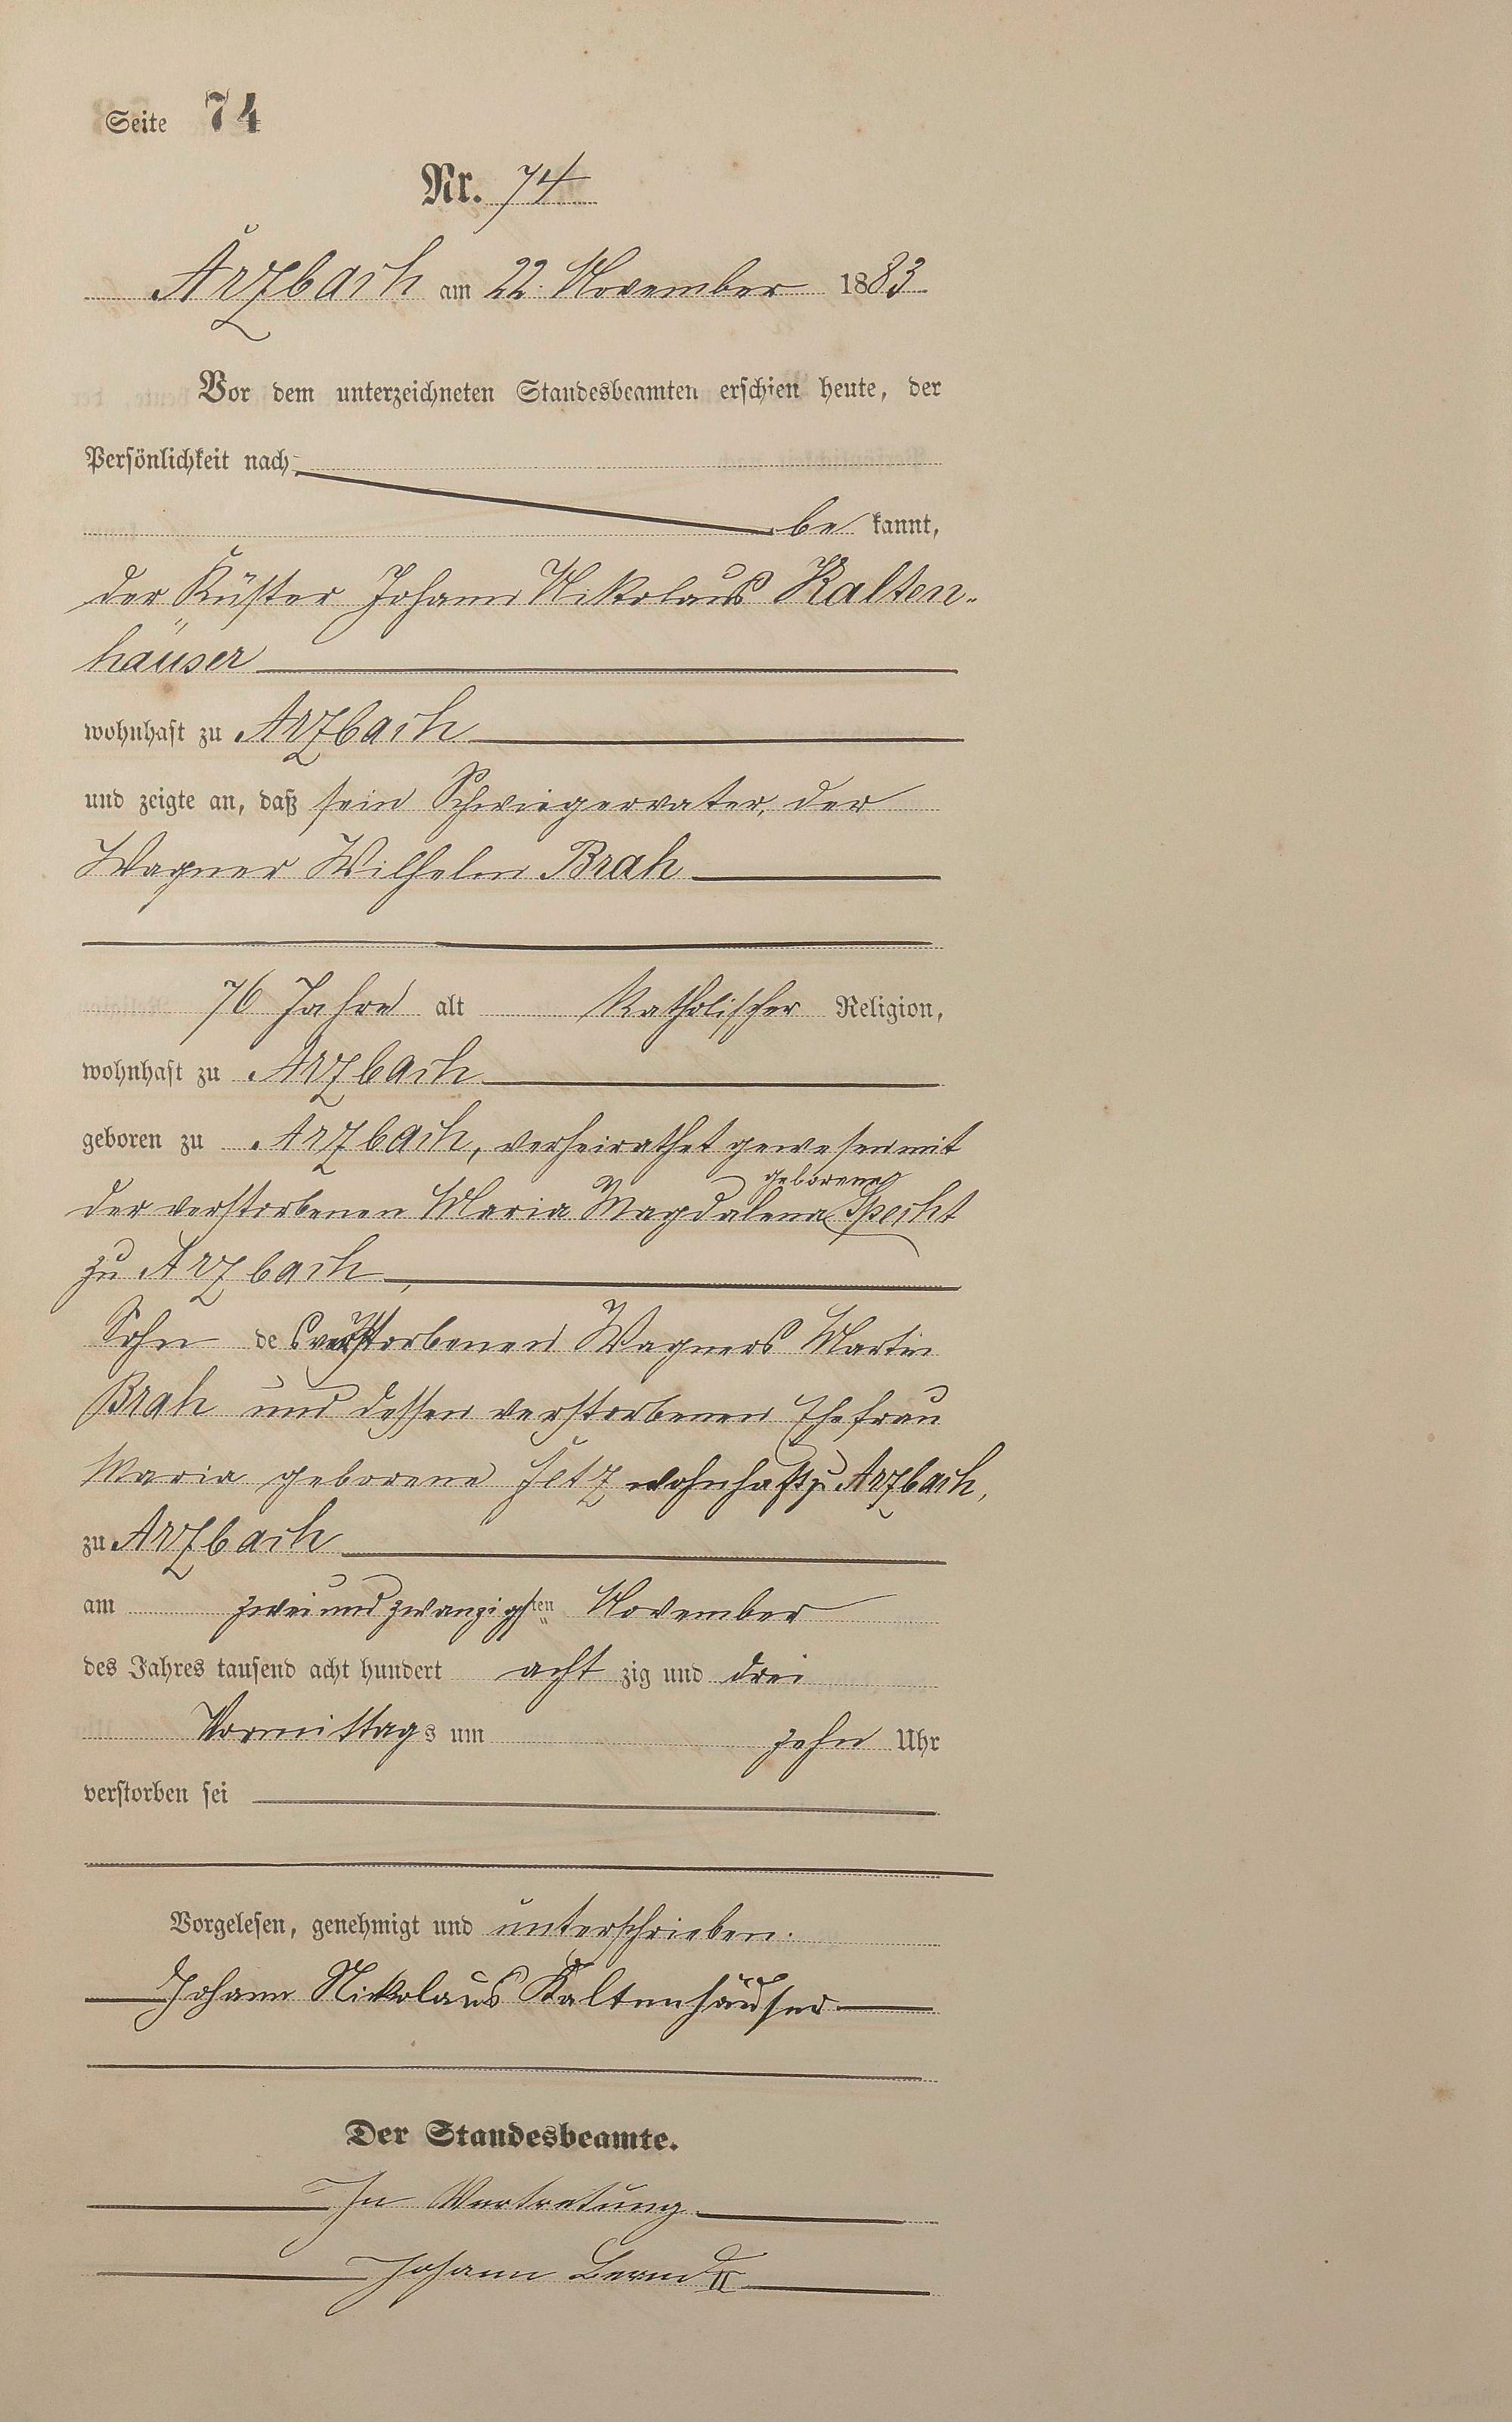 Seite 74
Nr. 74
Arzbach am 22. November 1883
Vor dem unterzeichneten Standesbeamten erschien heute, der
Persönlichkeit nach
be kannt,
der Küster Johann Nikolaus Kalten-
häuser
wohnhaft zu Arzbach
und zeigte an, daß sein Schwiegervater, der
Wagner Wilhelm Brah
76 Jahre alt katholischer Religion,
wohnhaft zu Arzbach
geboren zu Arzbach, verheirathet gewesen mit
der verstorbenen Maria Magdalena geborene Specht
zu Arzbach,
Sohn des verstorbenen Wagners Martin
Brah und dessen verstorbenen Ehefrau
Maria geborene wohnhaft zu Arzbach,
zu Arzbach
am zweiundzwanzigsten November
des Jahres tausend acht hundert acht zig und drei
Vormittags um zehn Uhr
verstorben sei
Vorgelesen, genehmigt und unterschrieben.
Johann Nikolaus Kaltenhäuser
Der Standesbeamte.
In Vertretung
Johann Bernd II